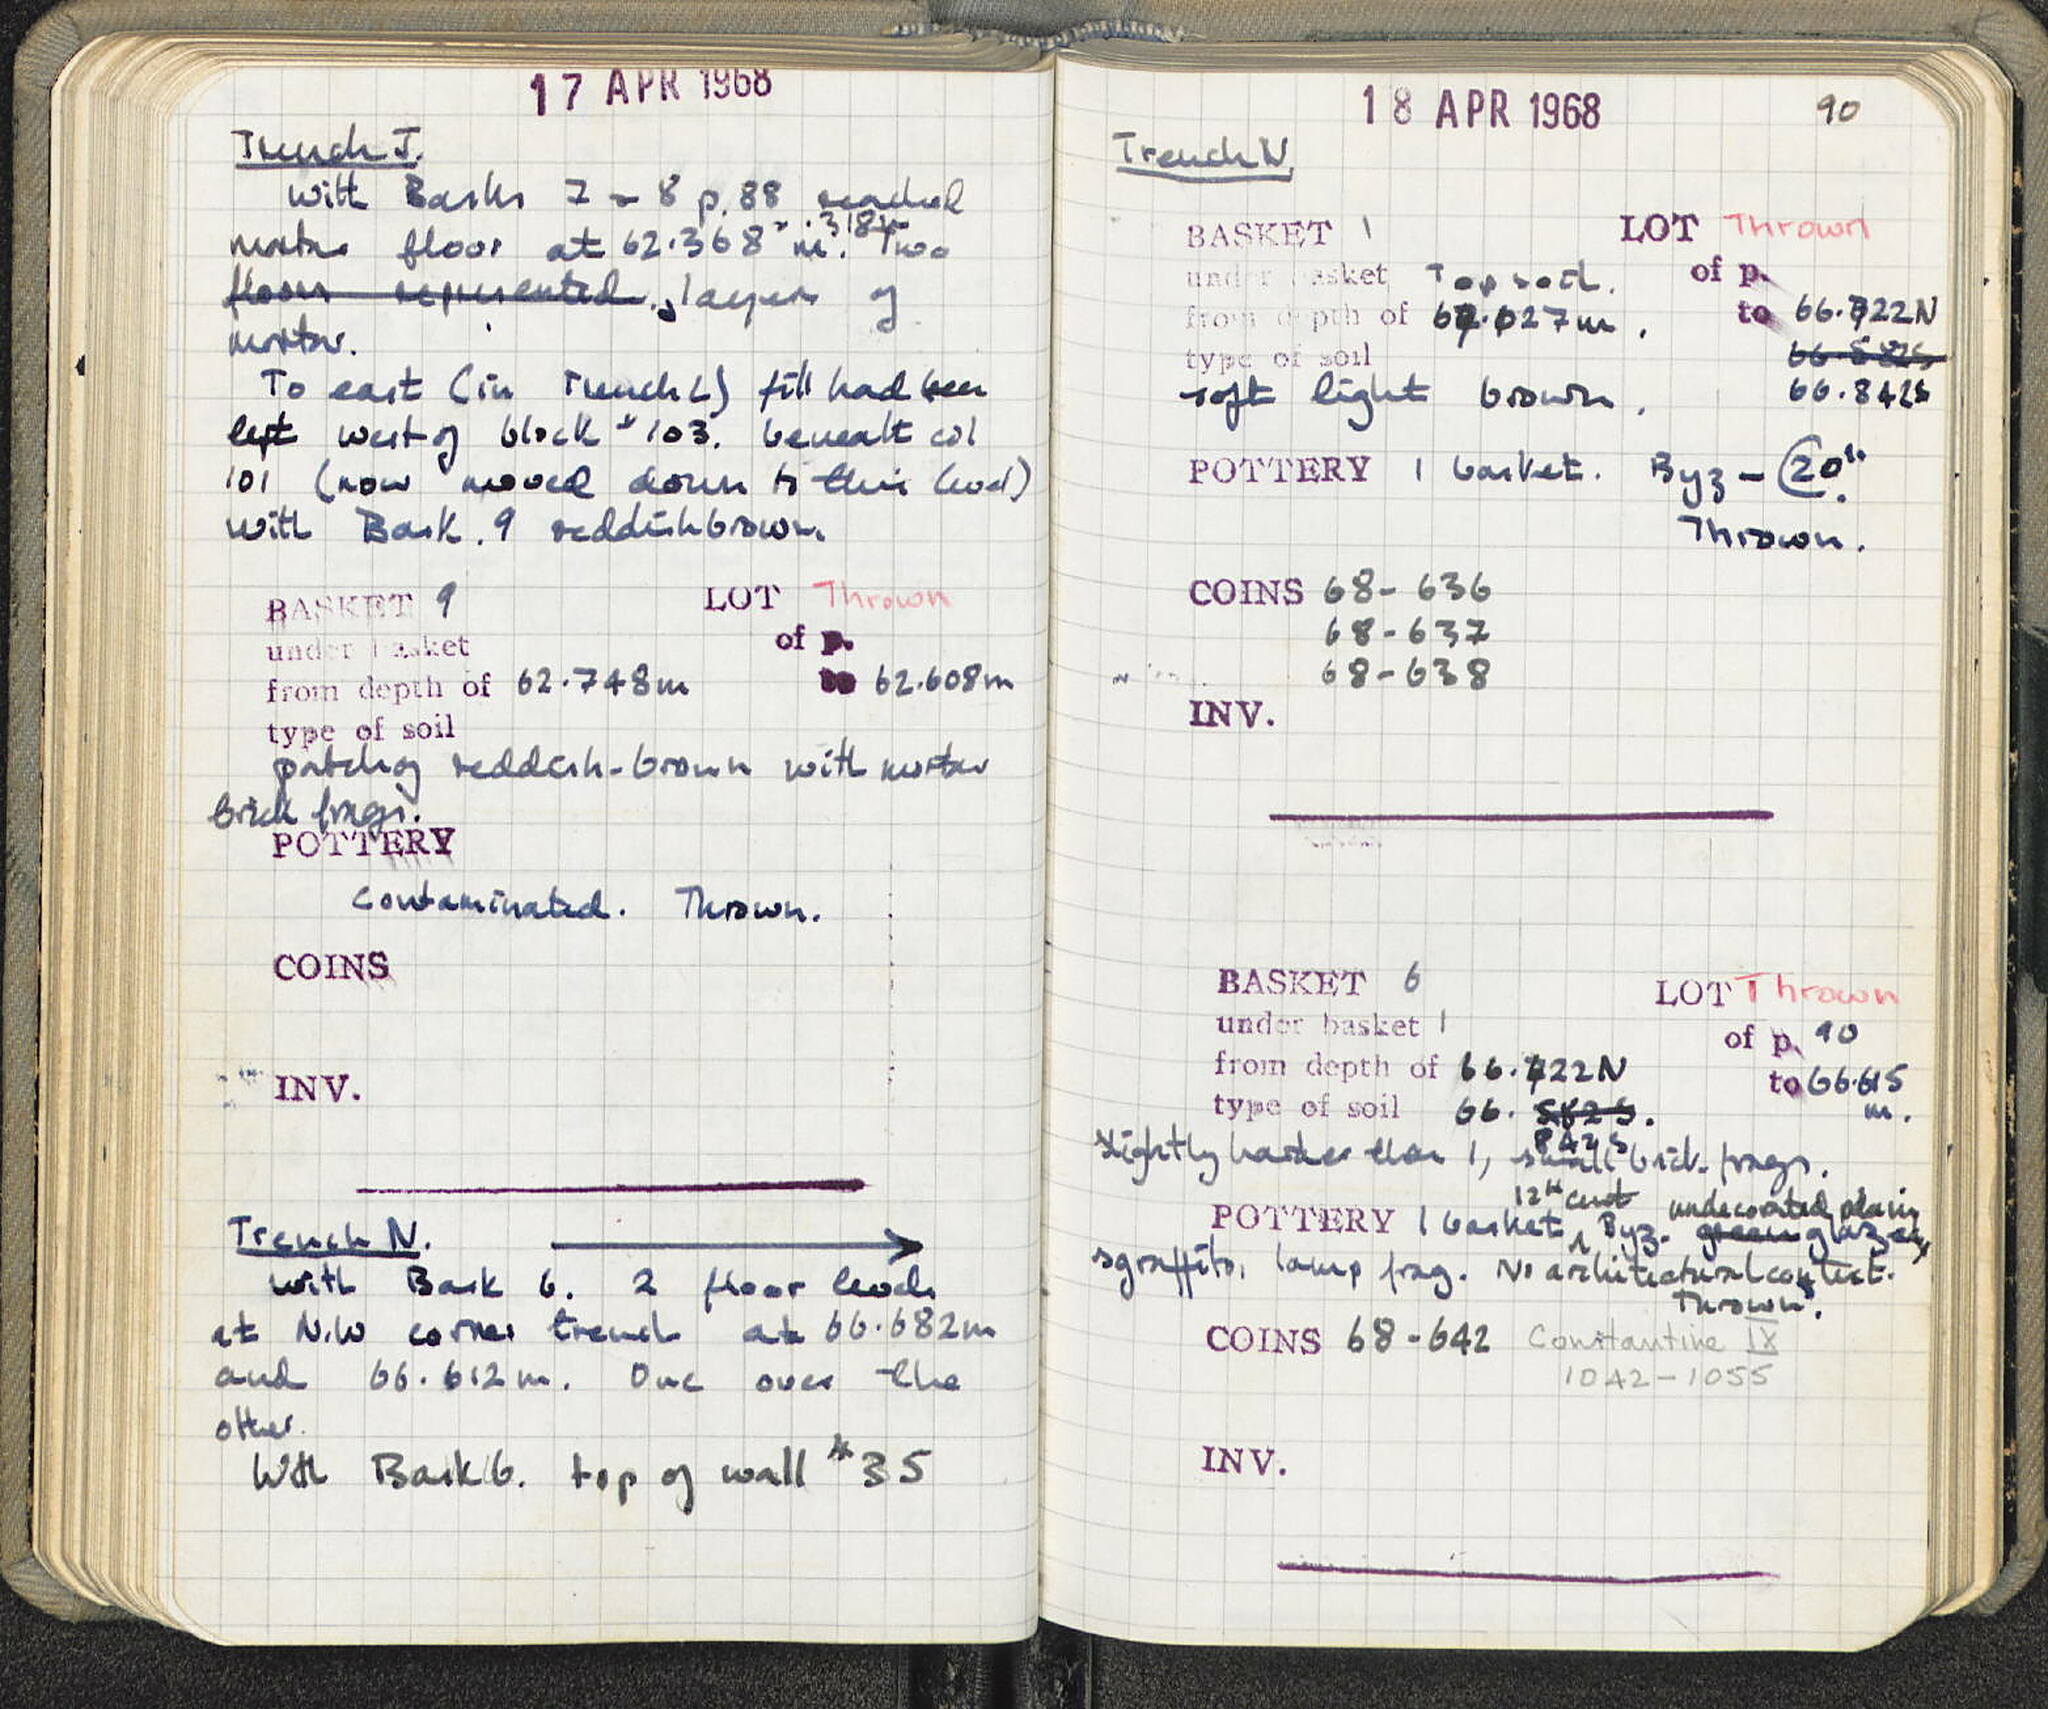 17 APR 1968
Trench J.
With Basks 7 - 8 p. 88 reached
mortar floor at 62.368 - .318m m. Two
floors represented. layers of
mortar.
To east (in Trench L) fill had been
left west of block #103. beneath col
101 (now moved down to this level)
with Bask. 9 reddish brown.
BASKET 9 LOT Thrown
under basket of p.
from depth of 62.748m to 62.608m
type of soil
patch of reddish-brown with mortar
brick frags.
POTTERY
Contaminated. Thrown.
COINS
INV.
Trench N.
With Bask 6. 2 floor levels
at N.W corner trench at 66.682m
and 66.612m. One over the
other.
With Bask 6. top of wall #35
18 APR 1968 90
Trench N.
BASKET 1 LOT Thrown
under basket Topsoil. of p.
from depth of 67.027m. to 66.722N
type of soil 66.582S
soft light brown. 66.842S
POTTERY 1 basket. Byz - (20".
Thrown.
COINS 68-636
68-637
68-638
INV.
BASKET 6 LOT Thrown
under basket 1 of p. 90
from depth of 66.722N to 66.615
type of soil 66. 582S. m.
842S
Slightly harder than 1, small brick frags.
12th cent undecorated plain
POTTERY 1 basket Byz. green glaze,
sgraffito, lamp frag. No architectural context.
Thrown.
COINS 68-642 Constantine IX
1042-1055
INV.